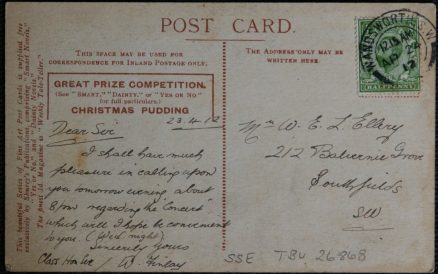 POST CARD.
THIS SPACE MAY BE USED FOR
CORRESPONDENCE FOR INLAND POSTAGE ONLY.
THE ADDRESS ONLY MAY BE
WRITTEN HERE.
GREAT PRIZE COMPETITION.
(See "SMART," "DAINTY," or "YES OR NO"
for full particulars.)
CHRISTMAS PUDDING
23.4.12
Dear Sir
I shall have much
pleasure in calling upon
you tomorrow evening about
8 pm regarding the "Concert"
which will I hope be convenient
to you. (Wed night)
Sincerely Yours
W. Finlay
Mr W. E. L. Ellery
212 Balvernie Grove
Southfields
SW
WANDSWORTH S.W.
AP 24
12
HALFPENNY
SSE TBU 26868
This beautiful Series of Fine Art Post Cards is supplied free
exclusively by Shurey's Publications, comprising "Smart Novels,"
"Yes or No," and "Dainty Novels."
The finest 1d Magazine is "Weekly Tale-Teller."